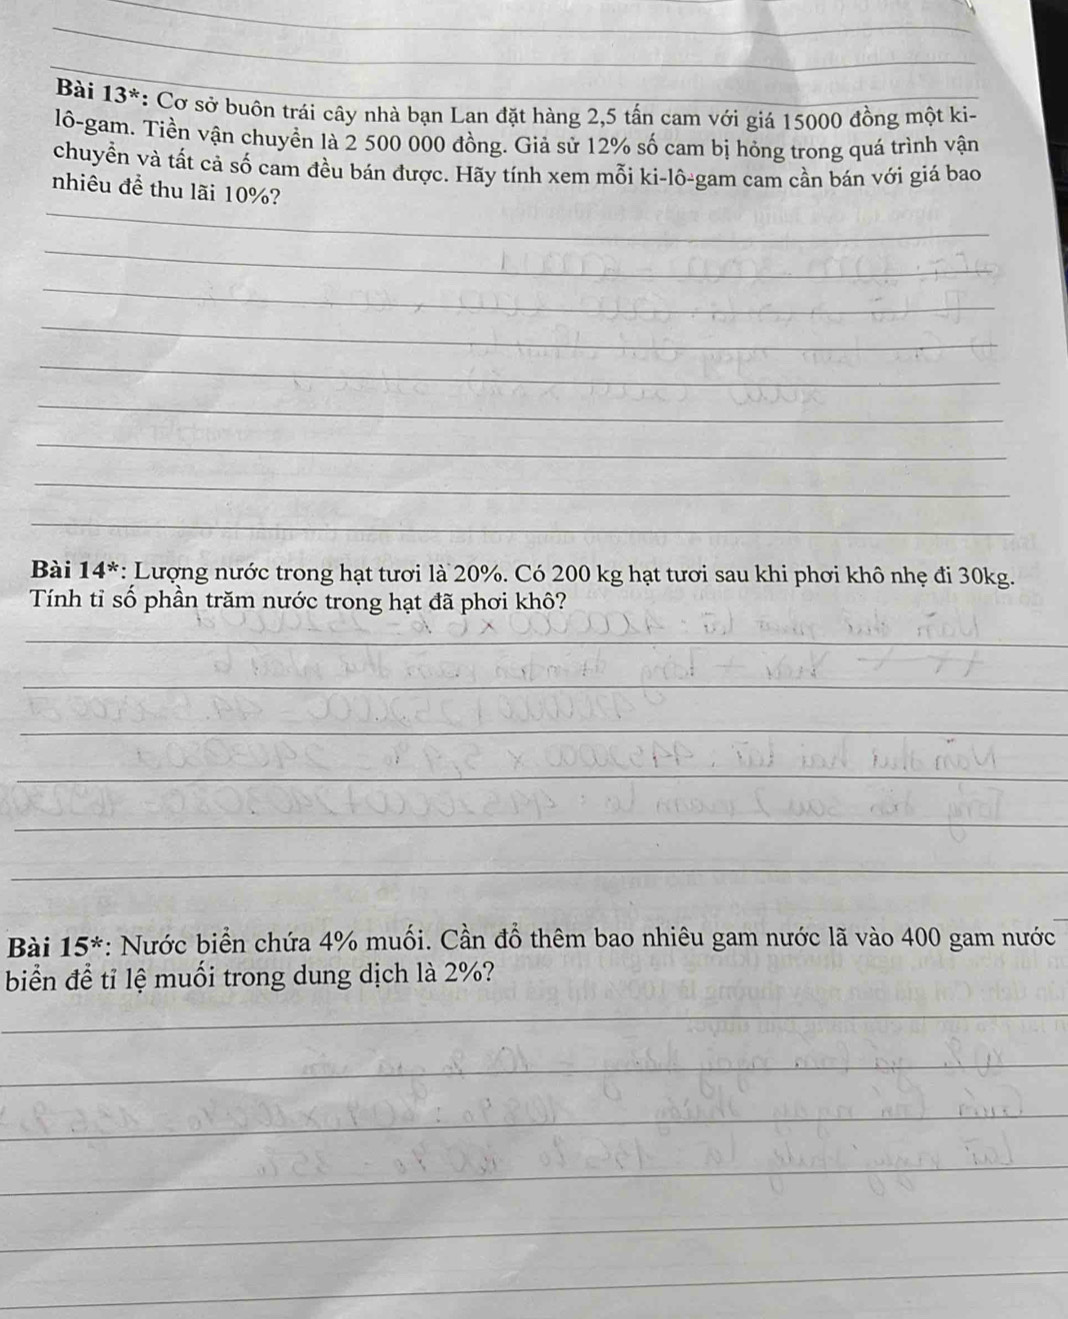 Bài 13*: Cơ sở buôn trái cây nhà bạn Lan đặt hàng 2,5 tấn cam với giá 15000 đồng một ki-
lô-gam. Tiền vận chuyển là 2 500 000 đồng. Giả sử 12% số cam bị hỏng trong quá trình vận
chuyển và tất cả số cam đều bán được. Hãy tính xem mỗi ki-lô-gam cam cần bán với giá bao
nhiêu để thu lãi 10%?
Bài 14*: Lượng nước trong hạt tươi là 20%. Có 200 kg hạt tươi sau khi phơi khô nhẹ đi 30kg.
Tính tỉ số phần trăm nước trong hạt đã phơi khô?
Bài 15*: Nước biển chứa 4% muối. Cần đổ thêm bao nhiêu gam nước lã vào 400 gam nước
biển để tỉ lệ muối trong dung dịch là 2%?